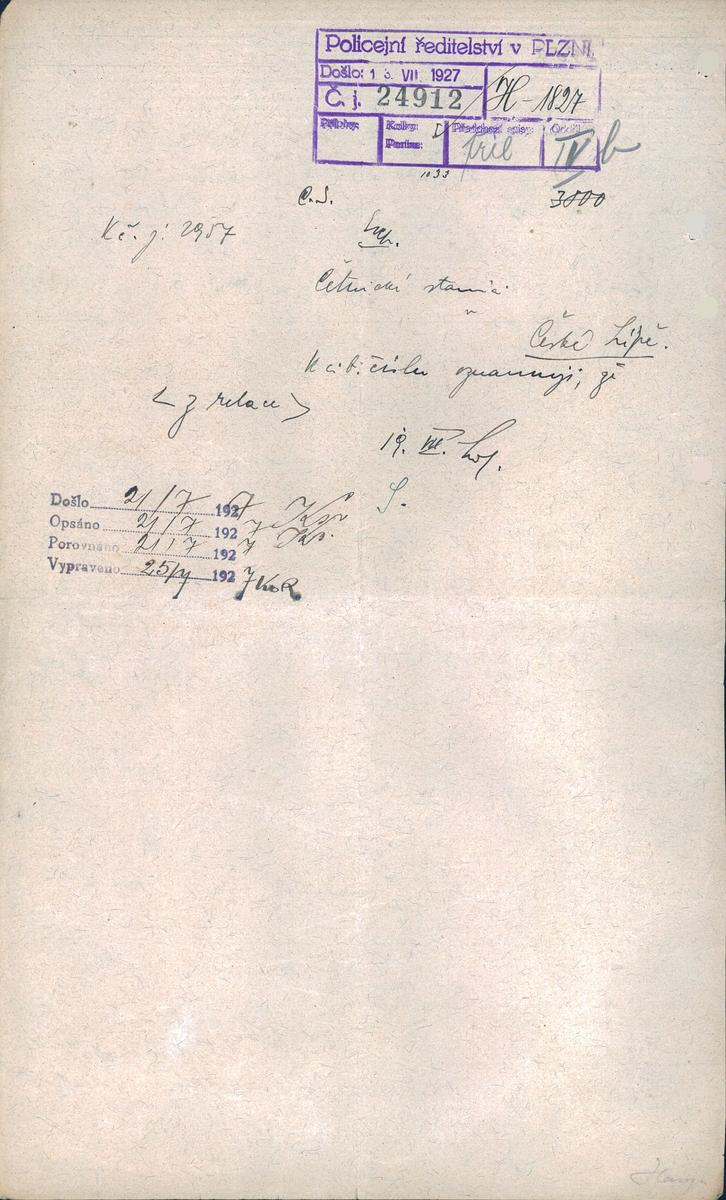 Policejní ředitelství v PLZNI.
Došlo: 1 3. VII. 1927
Č. j. 24912 H-1827
Přílohy: Kolky: Předchozí spisy: Odděl.
Porína: příl IV b
1033
Č.J. 3800
Kč. j. 2957
Četnická stanice
v
České Lípě.
K cit. číslu oznamuji, že
< z relace >
19. VII.
S.
Došlo 21/7 1927
Opsáno 21/7 1927
Porovnáno 21/7 1927
Vypraveno 25/7 1927 KoR